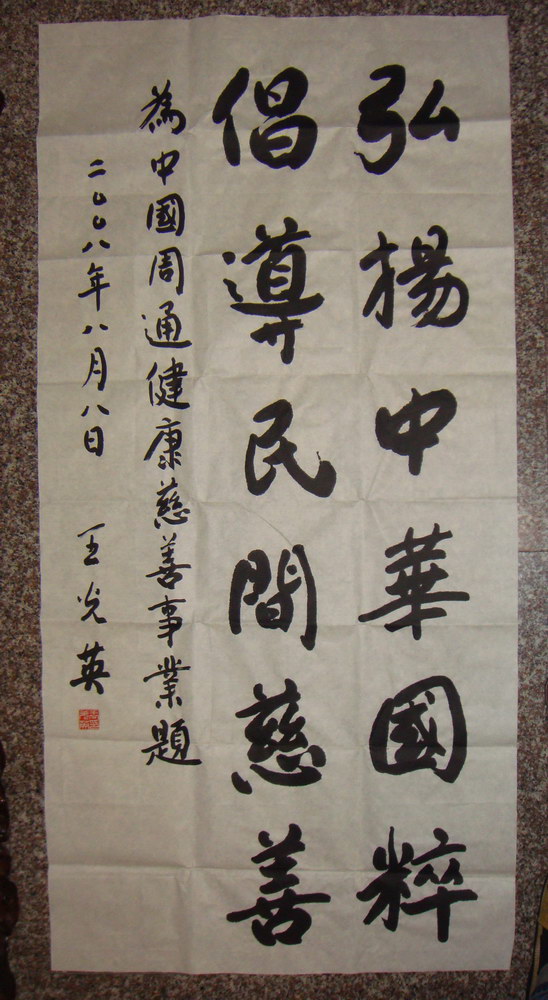 弘揚中華國粹
倡導民間慈善
為中國周通健康慈善事業題
二〇〇八年八月八日 王光英